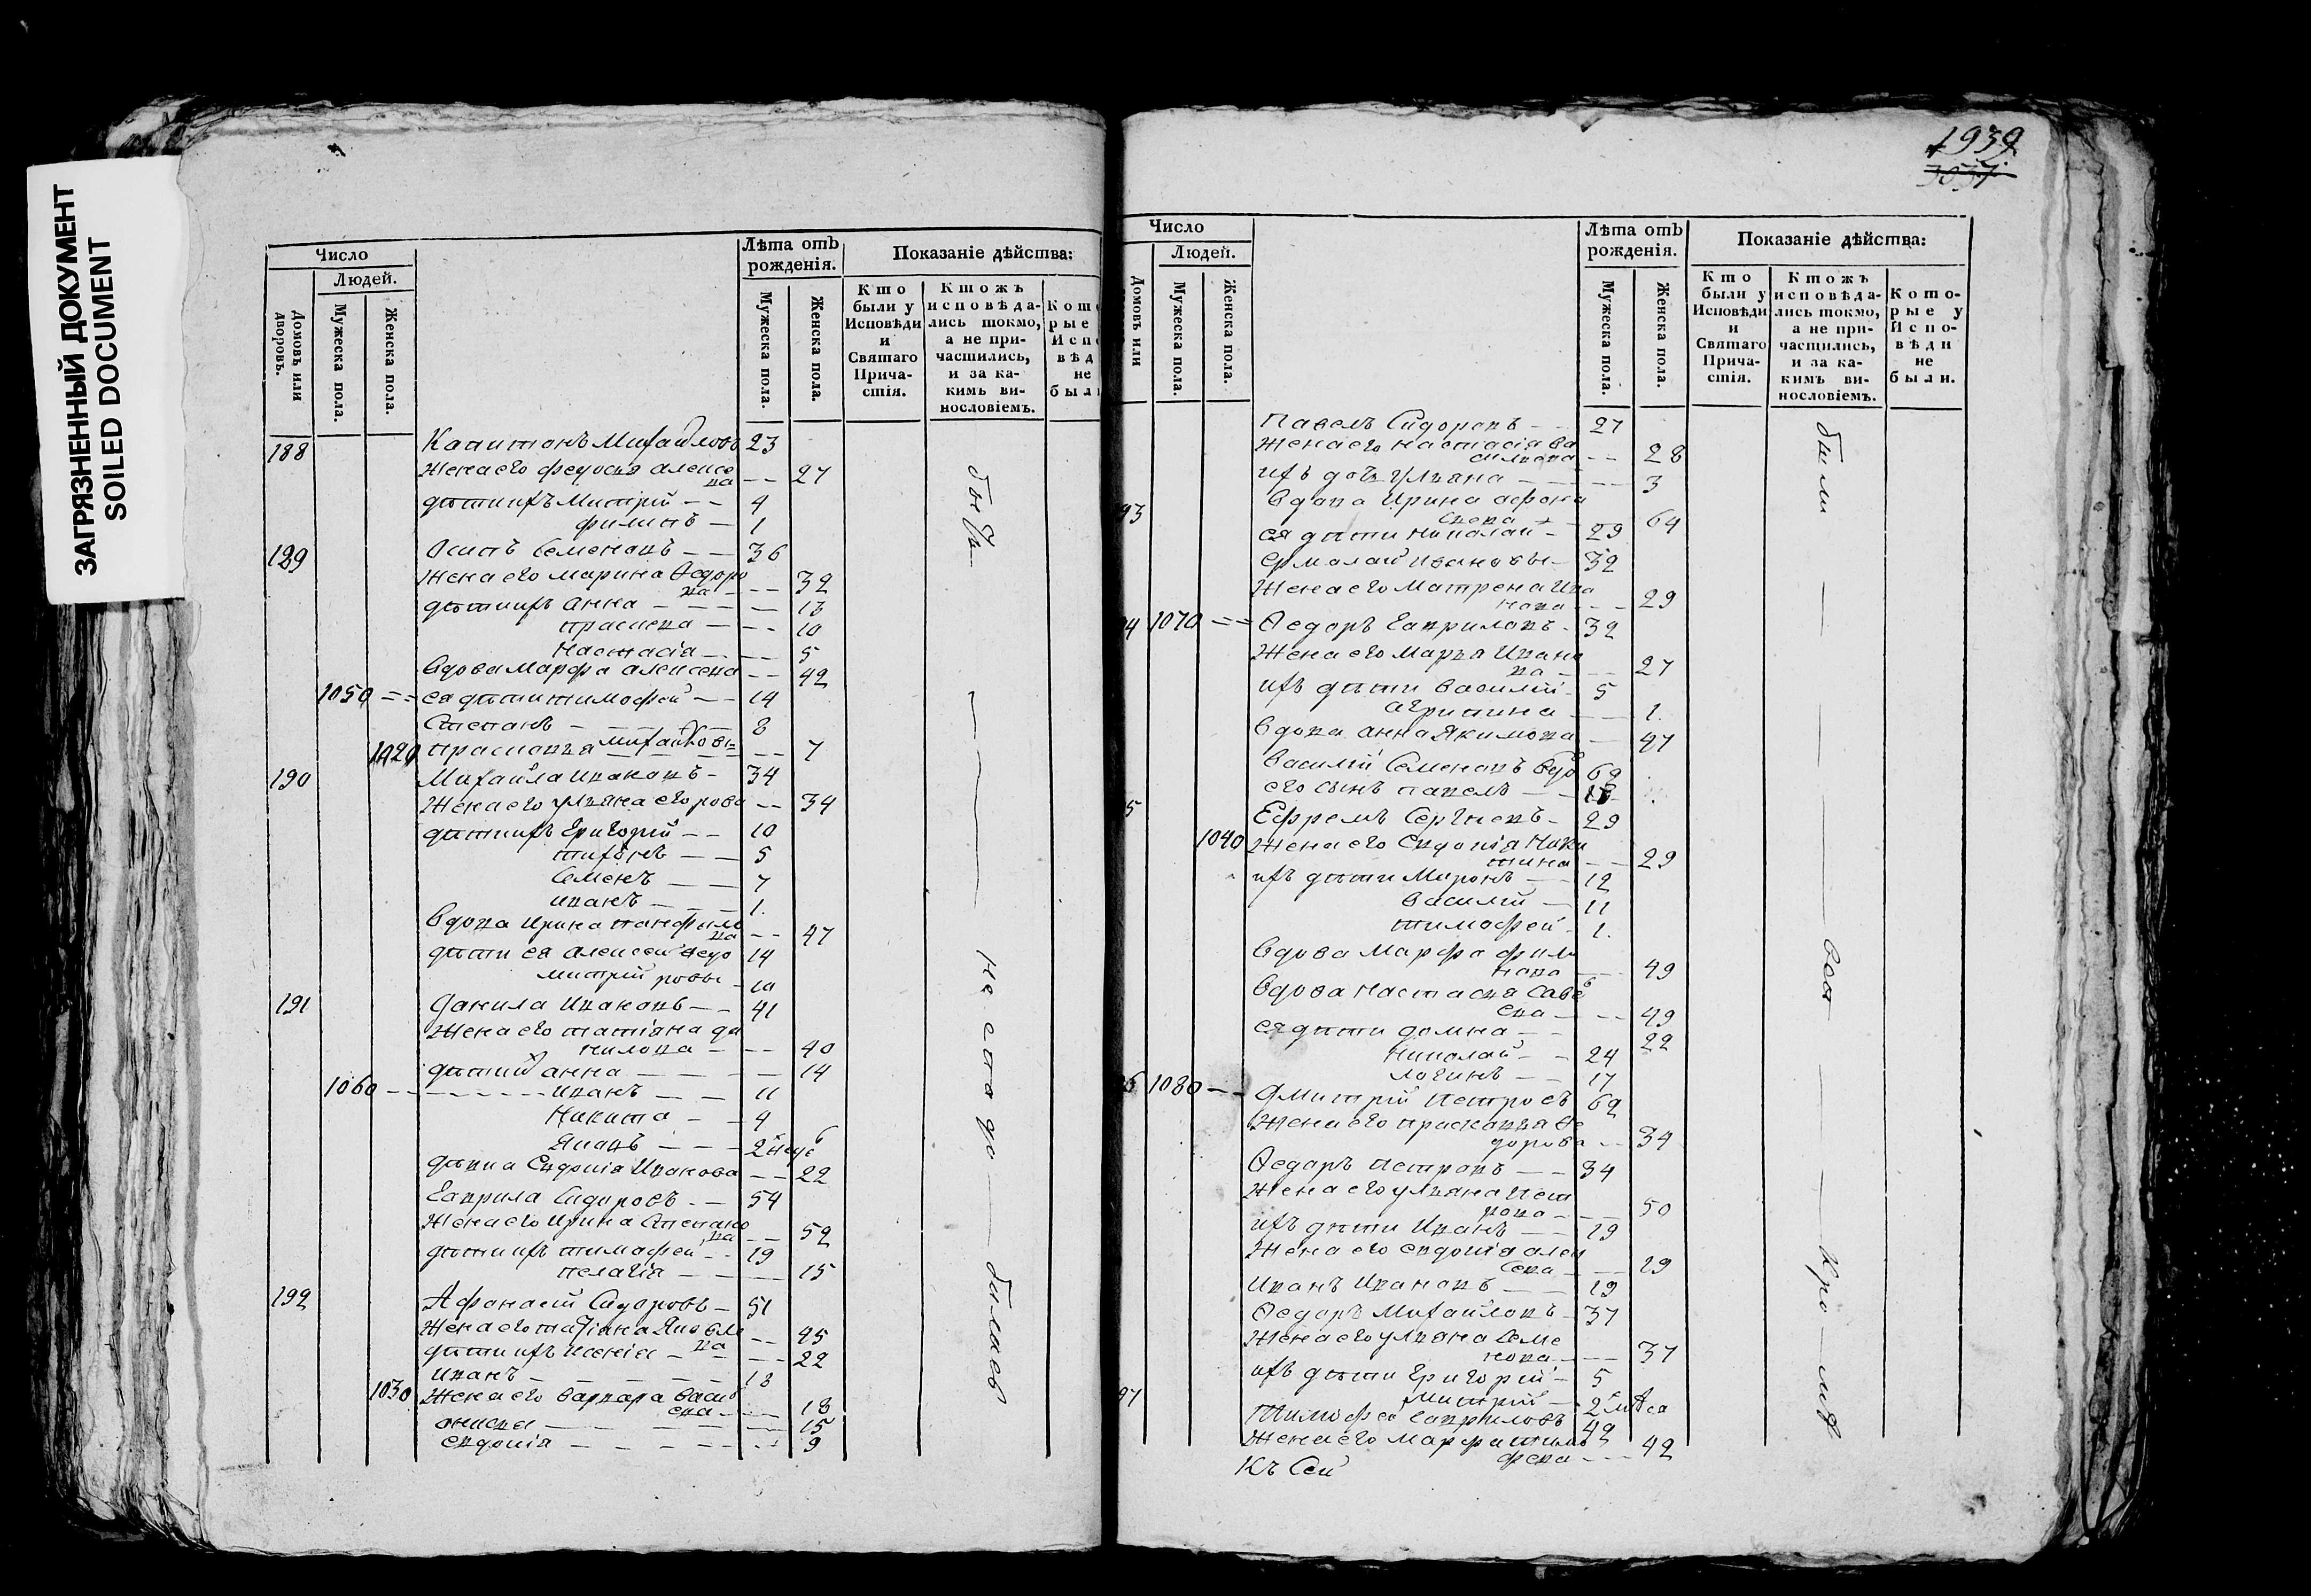 ЗАГРЯЗНЕННЫЙ ДОКУМЕНТ
SOILED DOCUMENT
Число
Людей.
Домовъ или дворовъ.
Мужеска пола.
Женска пола.
Лѣта отъ рожденія.
Мужеска пола.
Женска пола.
Показаніе дѣйства:
Кто были у Исповѣди и Святаго Причастія.
Ктожъ исповѣдались токмо, а не причастились, и за какимъ винословіемъ.
188 Капитонъ Михайловъ 23
Жена его Федосья Алексѣ
ва -- 27
дѣти ихъ Митрій -- 4
Филипъ - 1
189 Осипъ Семеновъ -- 36
Жена его Марина Ѳедоро
ва --- 32
дѣти ихъ Анна --- 13
Прасковя --- 10
Настасія --- 5
Вдова Марфа Алексева -- 42
1050 == ея дѣти Тимофей -- 14
Степанъ --- 8
1020 Прасковья Михайловы= -- 7
190 Михайла Ивановъ - 34
Жена его Ульяна Егорова -- 34
дѣти ихъ Григорій -- 10
Тихонъ -- 5
Семенъ -- 7
Иванъ --- 1.
Вдова Ирина Панфило
ва -- 47
дѣти ея Алексей Ѳедо 14
Митрій ровы - 10
191 Данила Ивановъ -- 41
Жена его Татіяна Да
нилова --- 40
дѣти их Анна --- 14
1060 -- Иванъ -- 11
Никита -- 4
Яковъ --- 2 неде
дѣвка Евдокія Иванова -- 22
Гаврила Сидоровъ -- 54
Жена его Ирина Степано
ва -- 52
дѣти ихъ Тимофей -- 19
Пелагія --- 15
192 Афонасій Сидоровъ - 51
Жена его Татіяна Яковле
ва -- 45
дѣти ихъ Ксенія --- 22
Иванъ --- 18
1030 Жена его Варвара Васи
ева --- 18
Анисья --- 15
Евдокія --- 9
не сподо били св
1939
Число
Людей.
Домовъ или
Мужеска пола.
Женска пола.
Лѣта отъ рожденія.
Мужеска пола.
Женска пола.
Показаніе дѣйства:
Кто были у Исповѣди и Святаго Причастія.
Ктожъ исповѣдались токмо, а не причастились, и за какимъ винословіемъ.
Которые у Исповѣди не были.
Павелъ Сидоровъ -- 27
Жена его Настасія Ва
сильева -- 28
ихъ дочь Ульяна --- 3
93 Вдова Ирина Афона
сьева -- 64
ея дѣти Николай - 29
Ермолай Ивановы - 32
Жена его Матрена Ива
нова --- 29
94 1070 == Ѳедоръ Гавриловъ - 32
Жена его Марья Ивано
ва --- 27
ихъ дѣти Василій - 5
Агрипина --- 1.
Вдова Анна Якимова - 47
Василій Семеновъ вдо 62
95 его сынъ Павелъ --
Ефремъ Сергѣевъ - 29
1040 Жена его Евдокія Ники
тина -- 29
ихъ дѣти Миронъ -- 12
Василій - 11
Тимофей - 1.
Вдова Марфа Фили
нова --- 49
Вдова Настасья Саве
ева --- 49
ея дѣти Домна -- 22
Николай -- 24
Логинъ -- 17
96 1080 -- Дмитрій Петровъ 62
Жена его Прасковья Ѳе
дорова -- 34
Ѳедоръ Петровъ -- 34
Жена его Ульяна Пет
рова --- 50
ихъ дѣти Иванъ -- 19
Жена его Евдокія Алек
сева --- 19
Иванъ Ивановъ -- 19
Ѳедоръ Михайловъ - 37
Жена его Ульяна Семе
нова --- 37
ихъ дѣти Григорій - 5
97 Митрій - 2
Тимофей Гавриловъ 42
Жена его Марфа Тимо
феева --- 42
Къ Сей
были